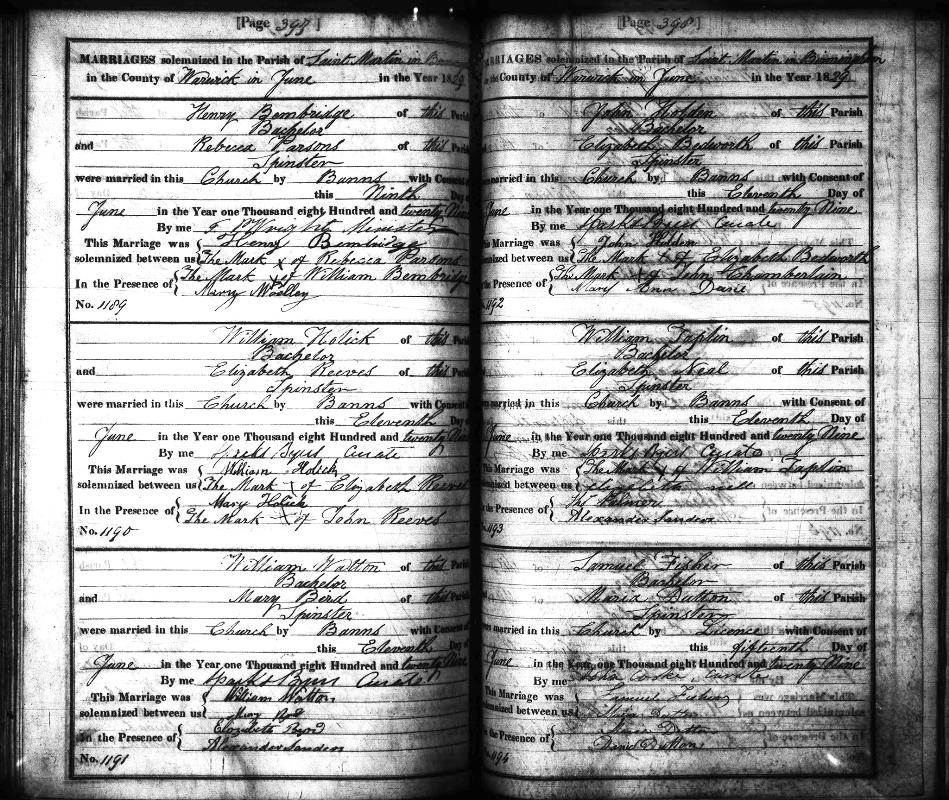 [Page 397]
MARRIAGES solemnized in the Parish of Saint Martin in
in the County of Warwick in June in the Year 1829
Henry Bembridge of this Parish
Bachelor
and Rebecca Parsons of this Parish
Spinster
were married in this Church by Banns with Consent
this Ninth Day of
June in the Year one Thousand eight Hundred and twenty Nine
By me Wright Minister
This Marriage was Henry Bembridge
solemnized between us The Mark x of Rebecca Parsons
In the Presence of The Mark x of William Bembridge
Mary Woolley
No. 1189
William Holick of this Parish
Bachelor
and Elizabeth Reeves of this Parish
Spinster
were married in this Church by Banns with Consent
this Eleventh Day of
June in the Year one Thousand eight Hundred and twenty Nine
By me Curate
This Marriage was William Holick
solemnized between us The Mark x of Elizabeth Reeves
In the Presence of Mary Holick
The Mark x of John Reeves
No. 1190
William Watton of this Parish
Bachelor
and Mary Bird of this Parish
Spinster
were married in this Church by Banns with Consent
this Eleventh Day of
June in the Year one Thousand eight Hundred and twenty Nine
By me Curate
This Marriage was William Watton
solemnized between us Mary
In the Presence of Elizabeth
Alexander Sanders
No. 1191
[Page 398]
MARRIAGES solemnized in the Parish of Saint Martin in Birmingham
in the County of Warwick in June in the Year 1829
John Holden of this Parish
Bachelor
Elizabeth Bedworth of this Parish
Spinster
were married in this Church by Banns with Consent of
this Eleventh Day of
June in the Year one Thousand eight Hundred and twenty Nine
By me Curate
This Marriage was John Holden
solemnized between us The Mark x of Elizabeth Bedworth
In the Presence of The Mark x of John Chamberlain
Mary Ann
1192
William Taplin of this Parish
Bachelor
Elizabeth Neal of this Parish
Spinster
were married in this Church by Banns with Consent of
this Eleventh Day of
June in the Year one Thousand eight Hundred and twenty Nine
By me Curate
This Marriage was The Mark x of William Taplin
solemnized between us
In the Presence of Wm Palmer
Alexander Sanders
1193
Samuel Fisher of this Parish
Bachelor
Maria Dutton of this Parish
Spinster
were married in this Church by Licence with Consent of
this fifteenth Day of
June in the Year one Thousand eight Hundred and twenty Nine
By me John Cooke Curate
This Marriage was Samuel Fisher
solemnized between us Maria Dutton
In the Presence of Dutton
David Dutton
1194